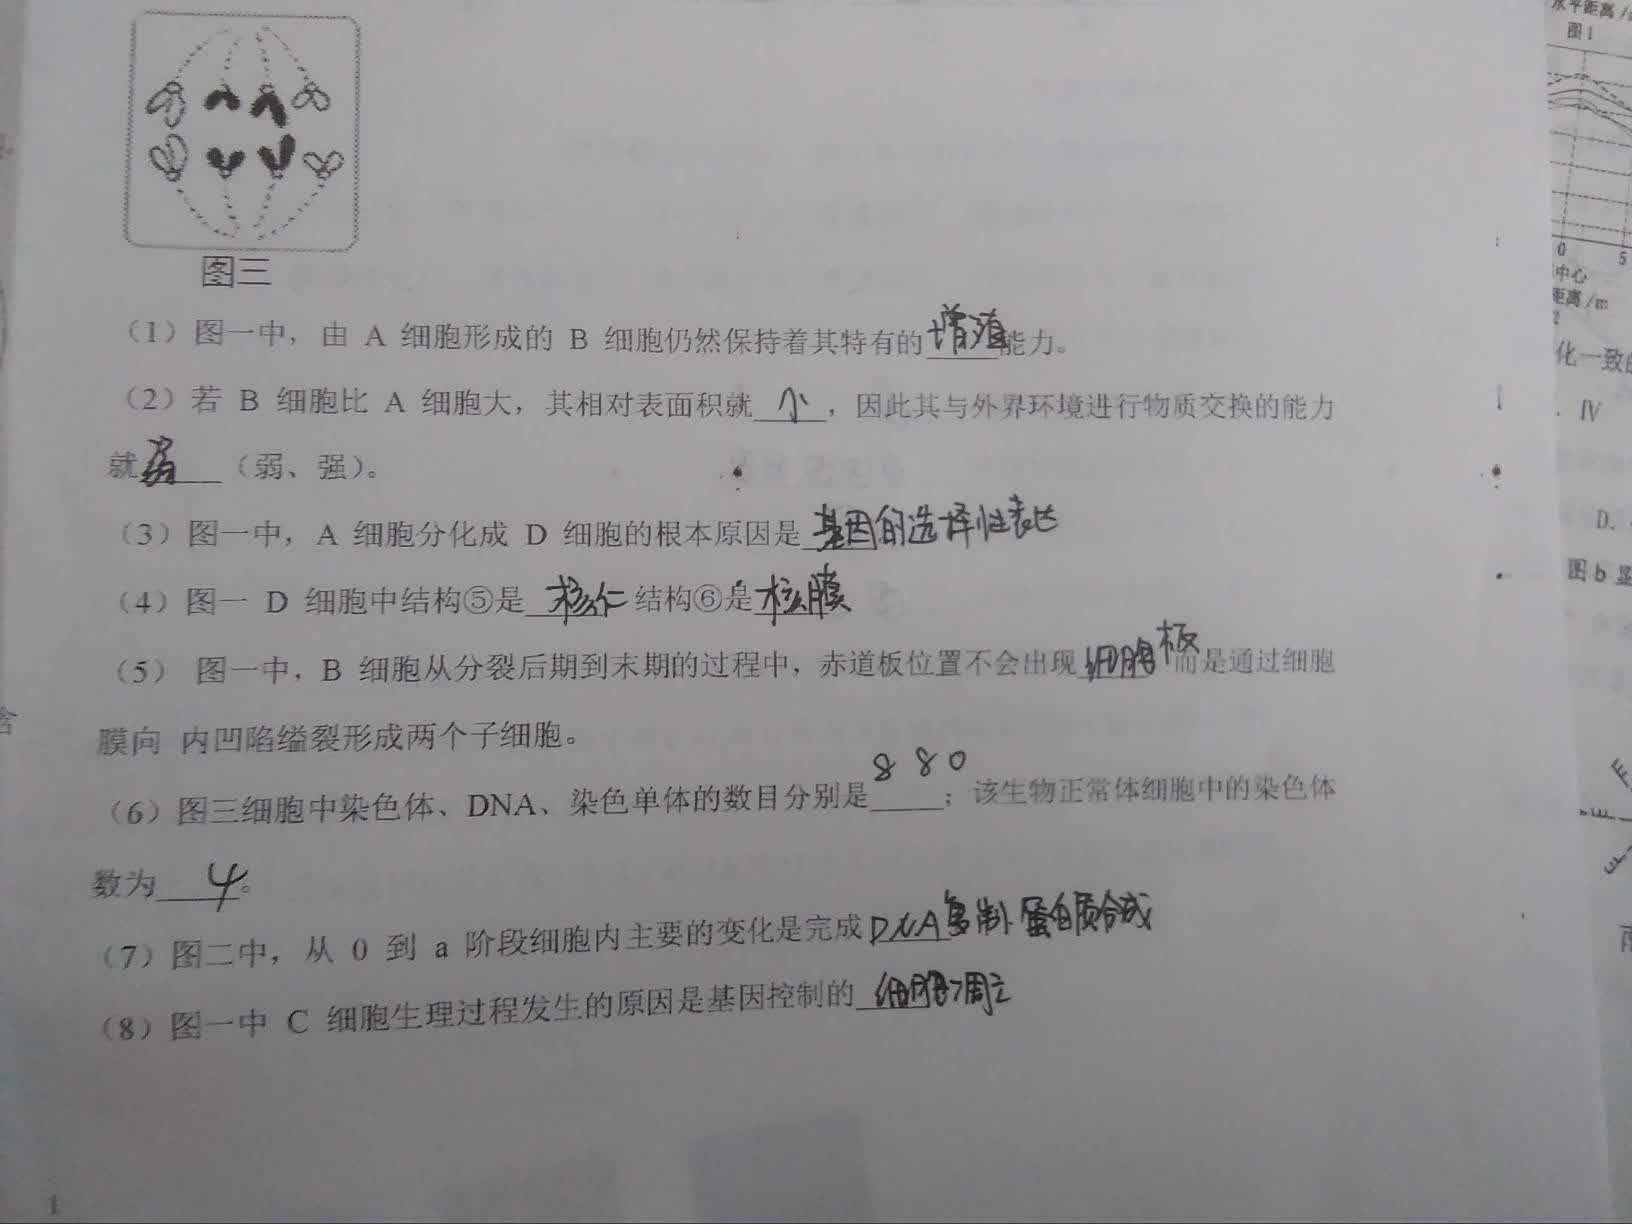 水平距离/
图1
图三
0 5
中心
距离/m
2
(1)图一中，由 A 细胞形成的 B 细胞仍然保持着其特有的增殖能力。
化一致的
(2)若 B 细胞比 A 细胞大，其相对表面积就小，因此其与外界环境进行物质交换的能力
. IV
就弱（弱、强）。
(3)图一中，A 细胞分化成 D 细胞的根本原因是基因的选择性表达
D.
(4)图一 D 细胞中结构⑤是核仁结构⑥是核膜
图b显
(5) 图一中，B 细胞从分裂后期到末期的过程中，赤道板位置不会出现细胞板而是通过细胞
膜向 内凹陷缢裂形成两个子细胞。
(6)图三细胞中染色体、DNA、染色单体的数目分别是8 8 0；该生物正常体细胞中的染色体
数为4。
(7)图二中，从 0 到 a 阶段细胞内主要的变化是完成DNA复制 蛋白质合成
(8)图一中 C 细胞生理过程发生的原因是基因控制的细胞凋亡
1